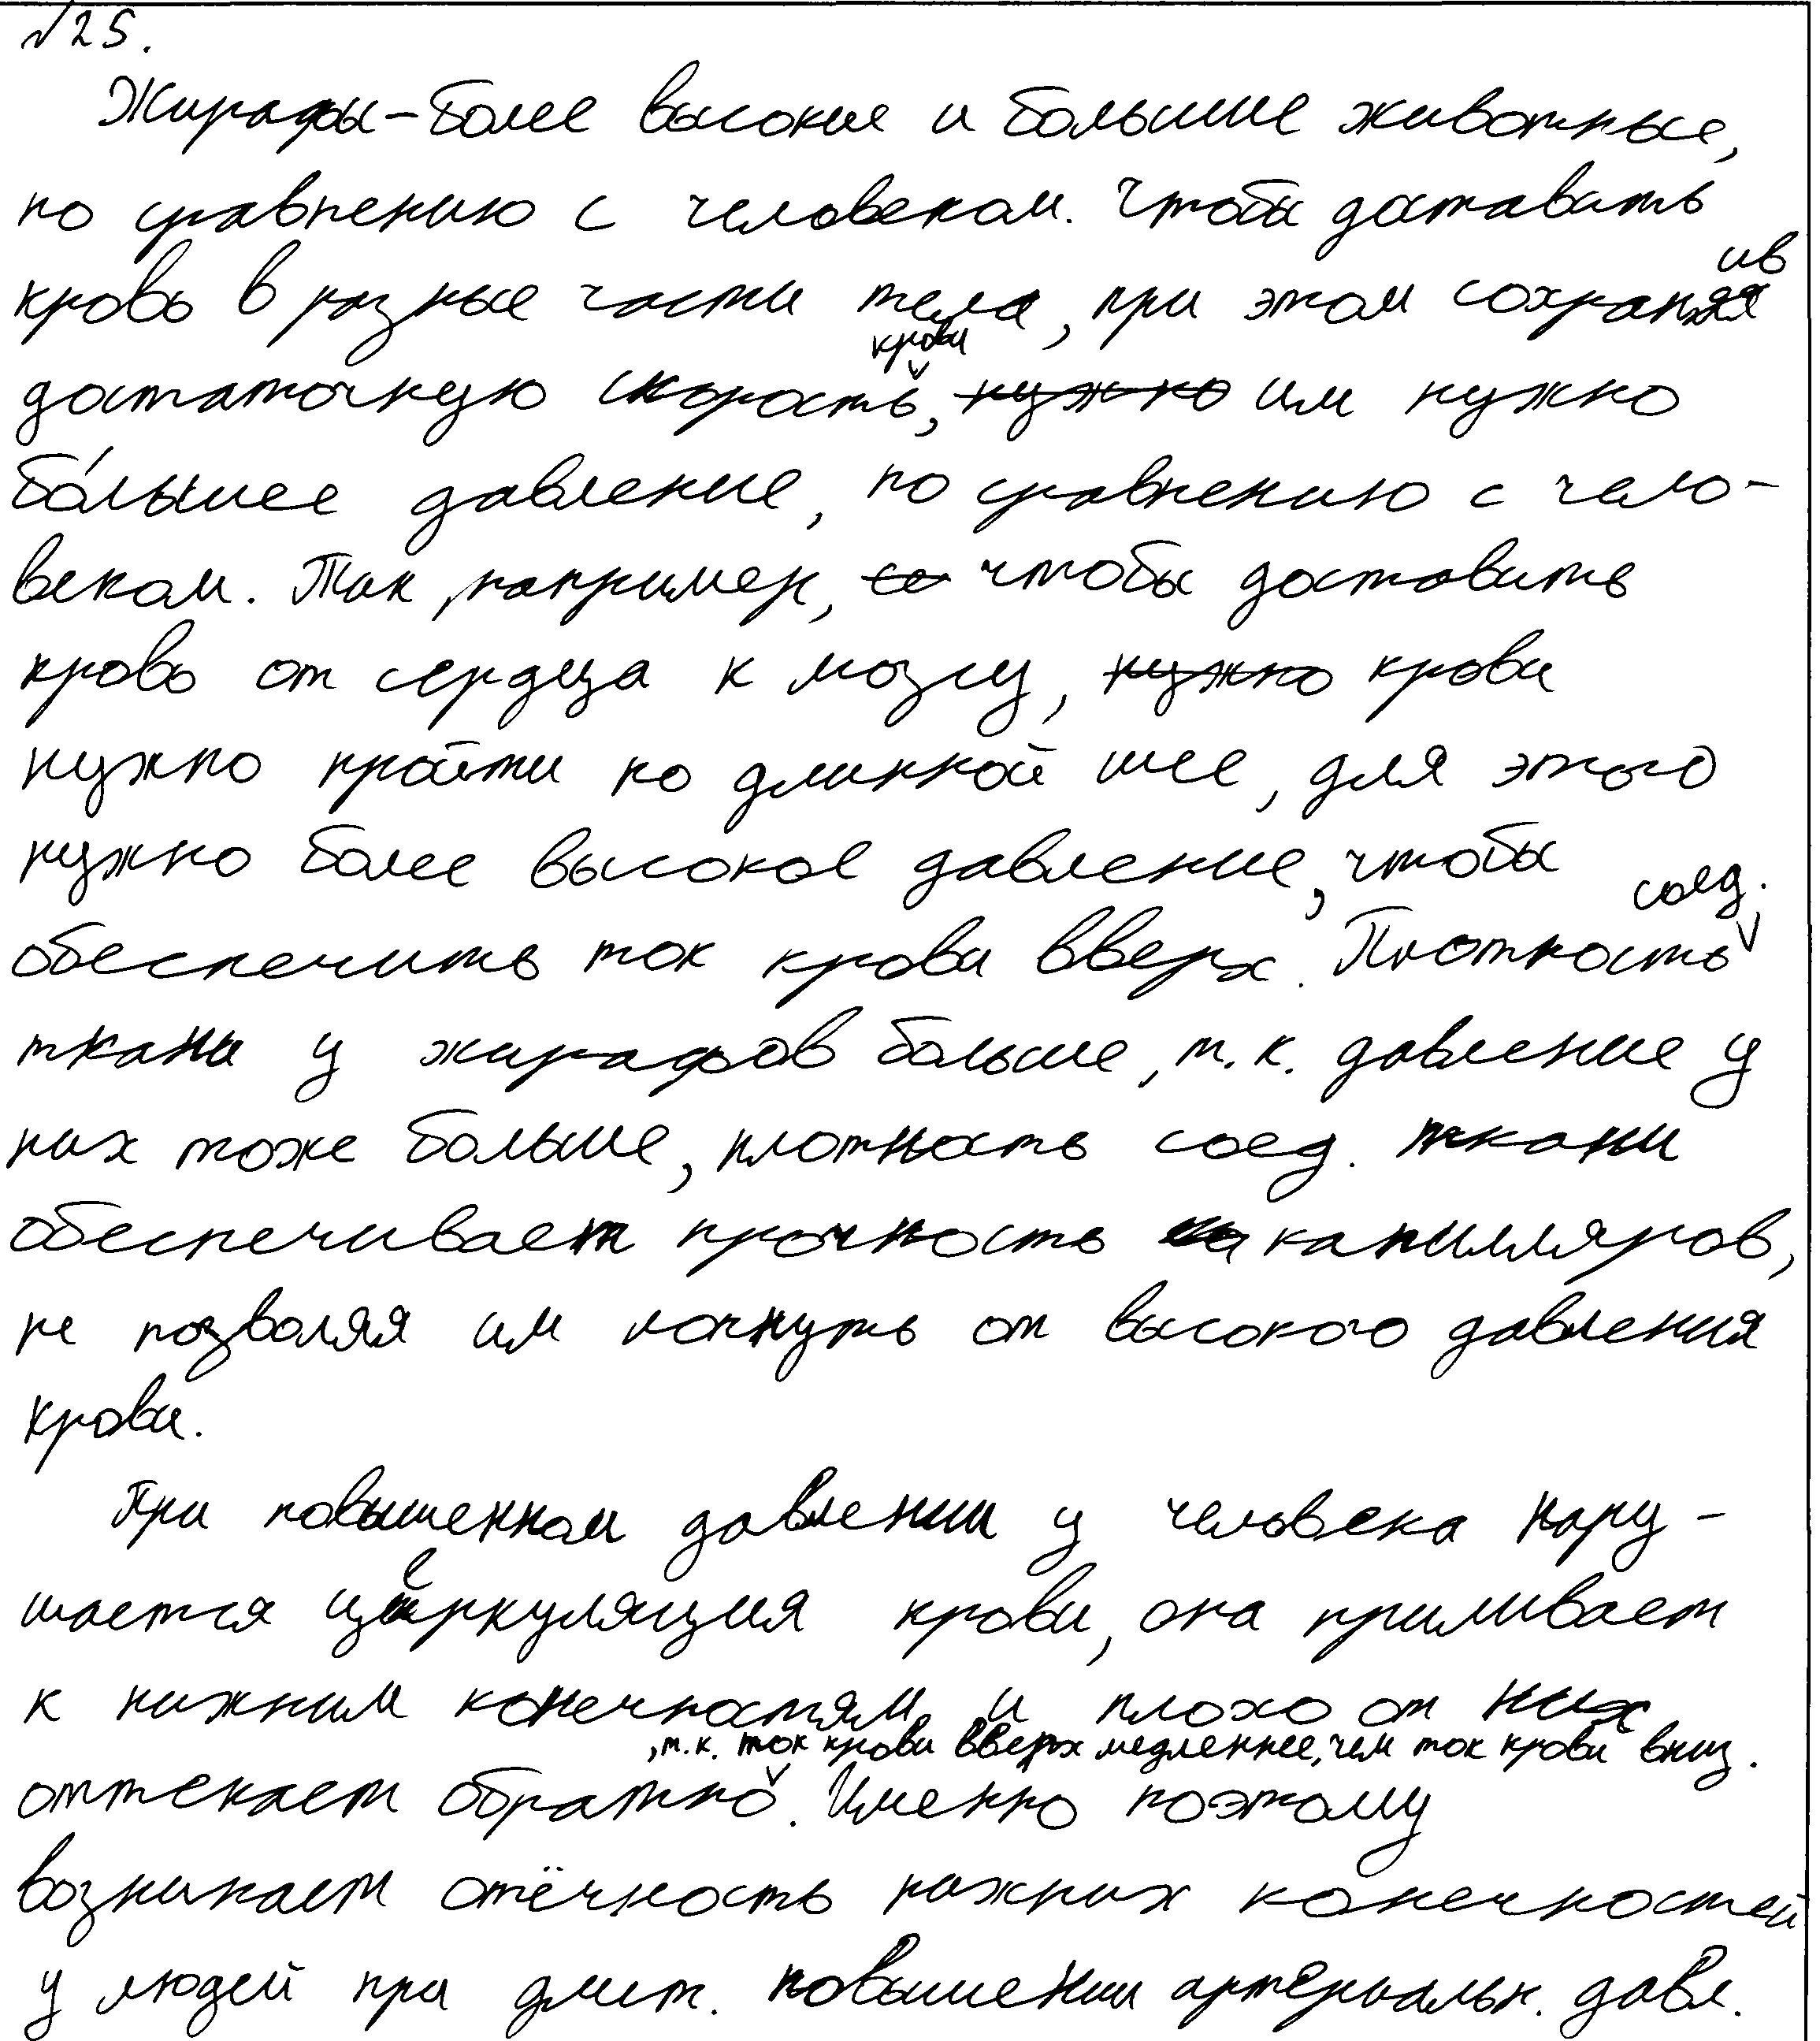 №25.
Жирафы – более высокие и большие животные,
по сравнению с человеком. Чтобы доставить
кровь в разные части тела, при этом сохранив
достаточную скорость крови, им нужно
бо́льшее давление, по сравнению с чело-
веком. Так, например, чтобы доставить
кровь от сердца к мозгу, крови
нужно пройти по длинной шее, для этого
нужно более высокое давление, чтобы
обеспечить ток крови вверх. Плотность соед.
ткани у жирафов больше, т.к. давление у
них тоже больше, плотность соед. ткани
обеспечивает прочность капилляров,
не позволяя им лопнуть от высокого давления
крови.
При повышенном давлении у человека нару-
шается церкуляция крови, она приливает
к нижним конечностям и плохо от них
оттекает обратно, т.к. ток крови вверх медленнее, чем ток крови вниз. Именно поэтому
возникает отёчность нижних конечностей
у людей при длит. повышении артериальн. давл.